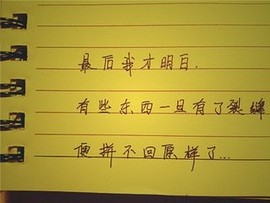 最后我才明白.
有些东西一旦有了裂缝
便拼不回原样了...